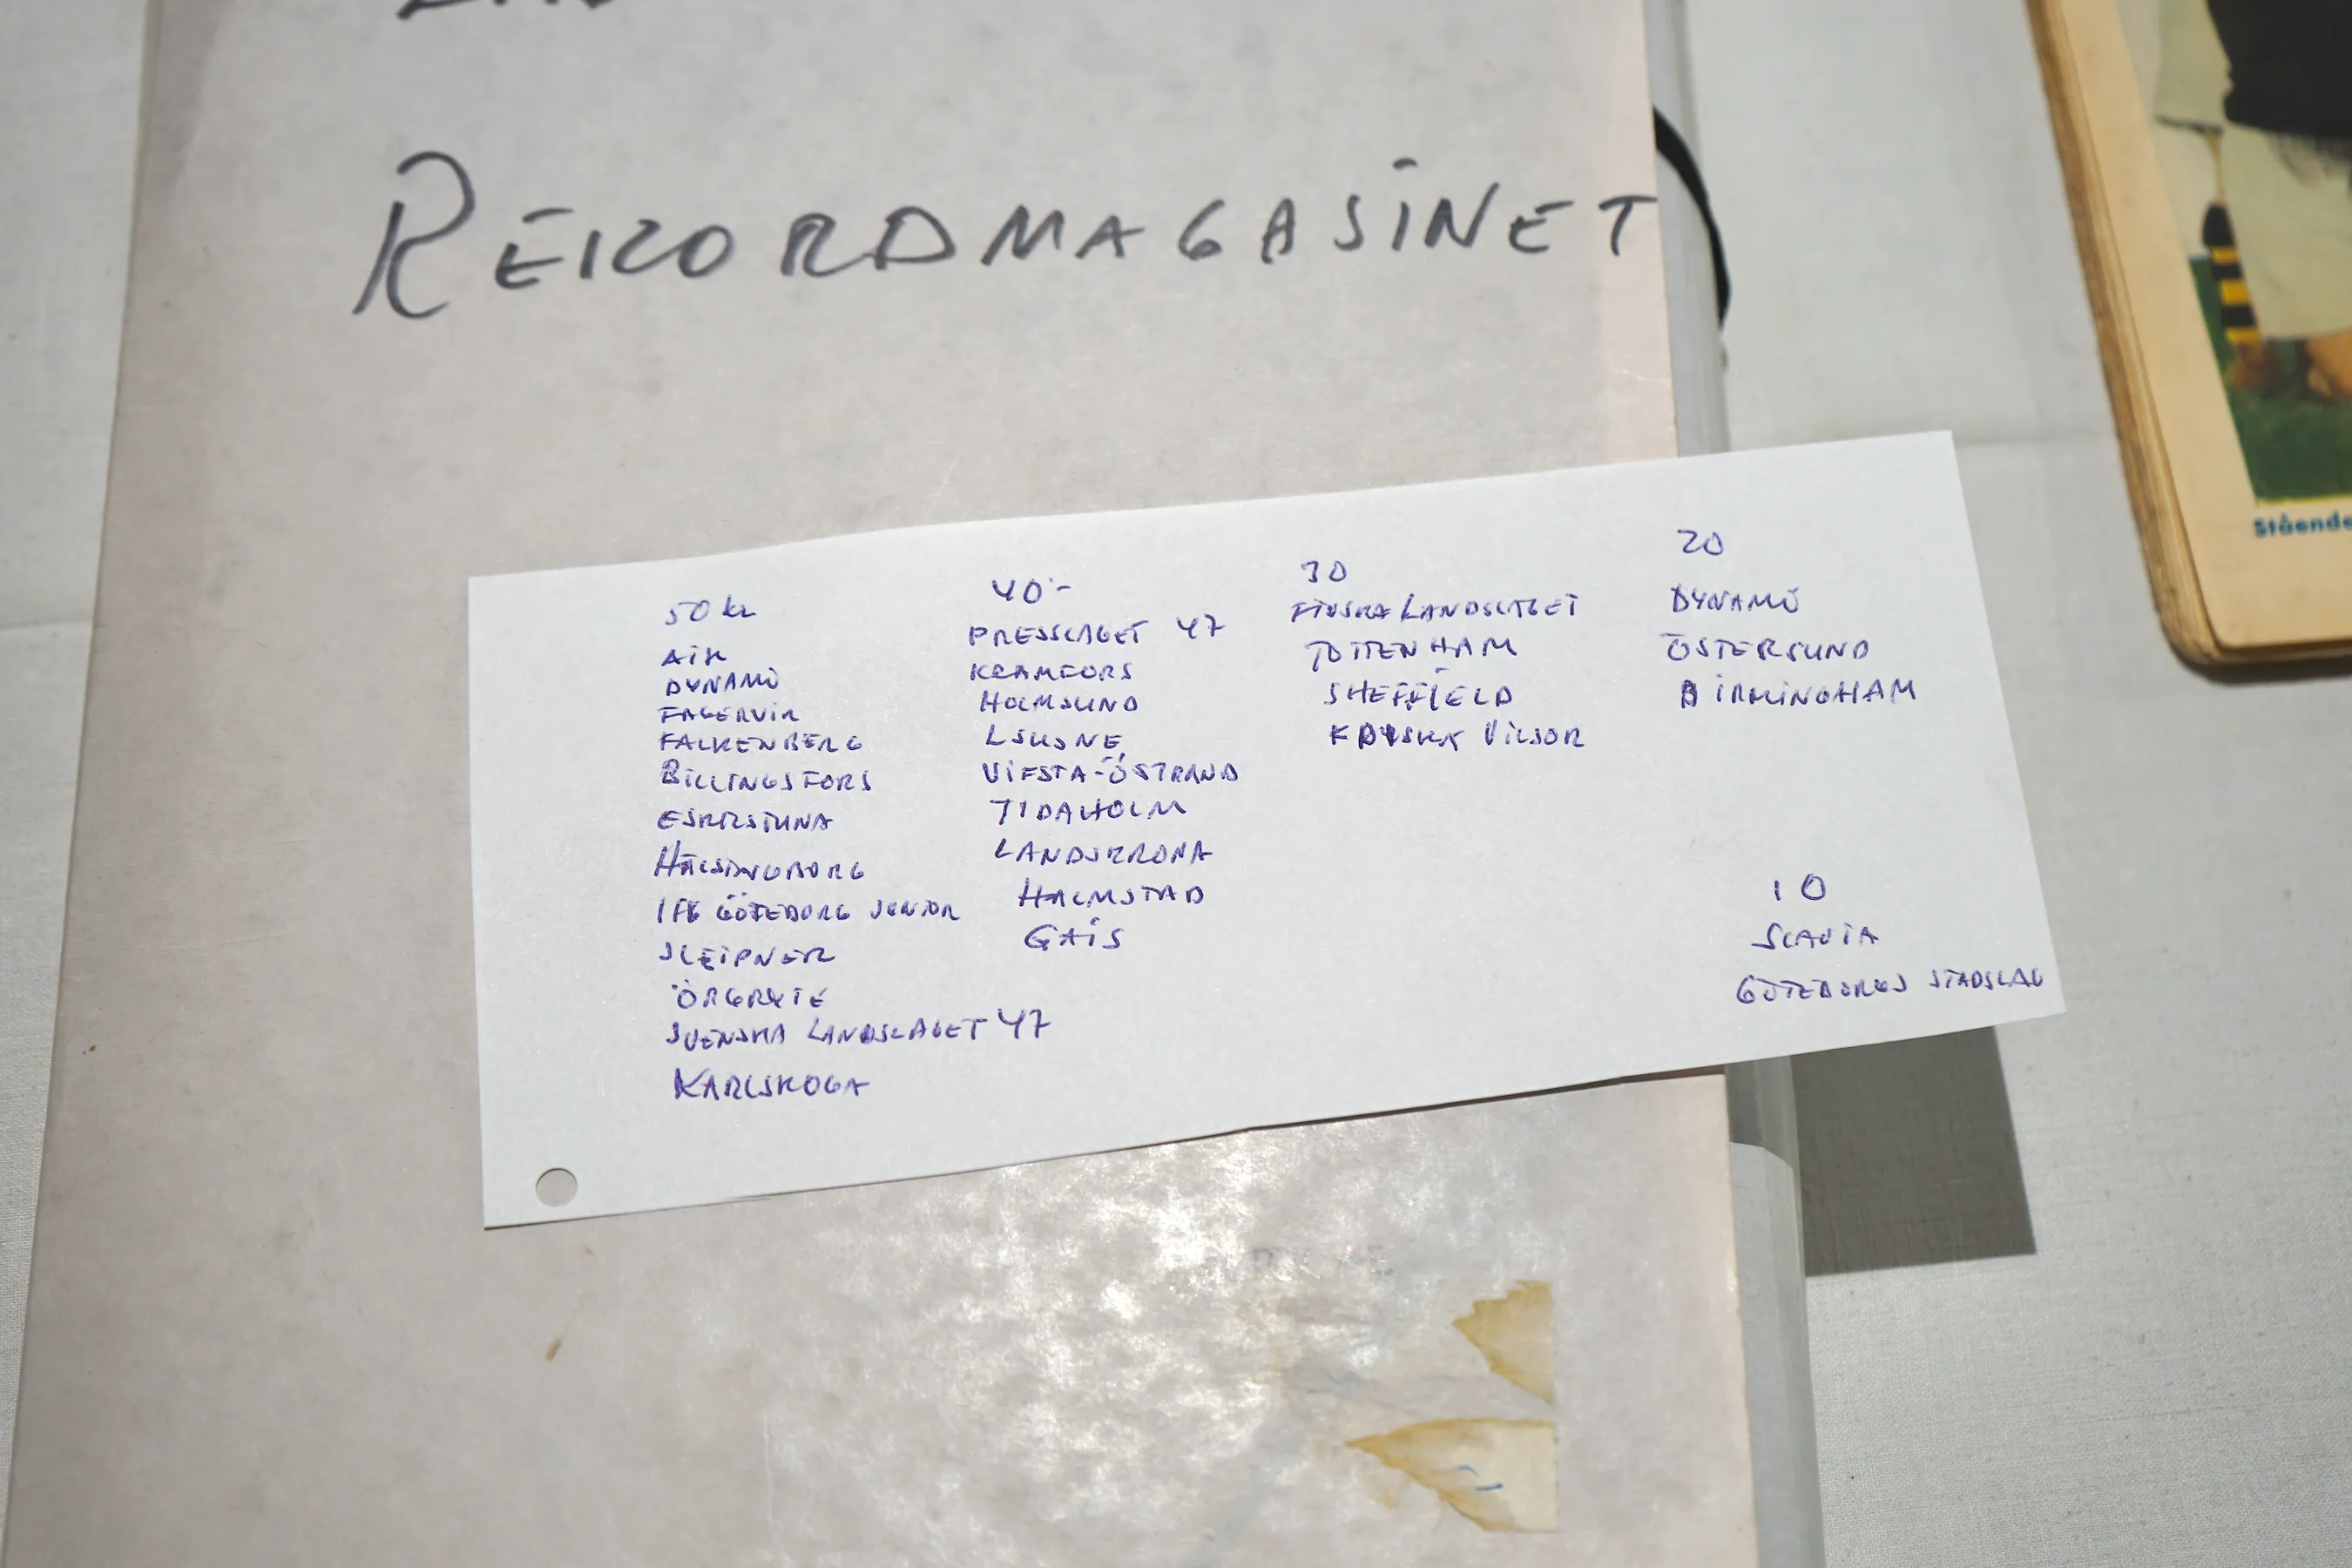 REKORDMAGASINET
50 kr
AIK
DYNAMO
FAGERVIK
FALKENBERG
BILLINGSFORS
ESKILSTUNA
HÄLSINGBORG
IFK GÖTEBORG JUNIOR
SLEIPNER
ÖRGRYTE
SVENSKA LANDSLAGET 47
KARLSKOGA
40:-
PRESSLAGET 47
KRAMFORS
HOLMSUND
LSKSNE
VIFSTA-ÖSTRAND
TIDAHOLM
LANDSKRONA
HALMSTAD
GAIS
30
FINSKA LANDSLAGET
TOTTENHAM
SHEFFIELD
20
DYNAMO
ÖSTERSUND
BIRMINGHAM
10
SLAVIA
GÖTEBORGS STADSLAG
Stående